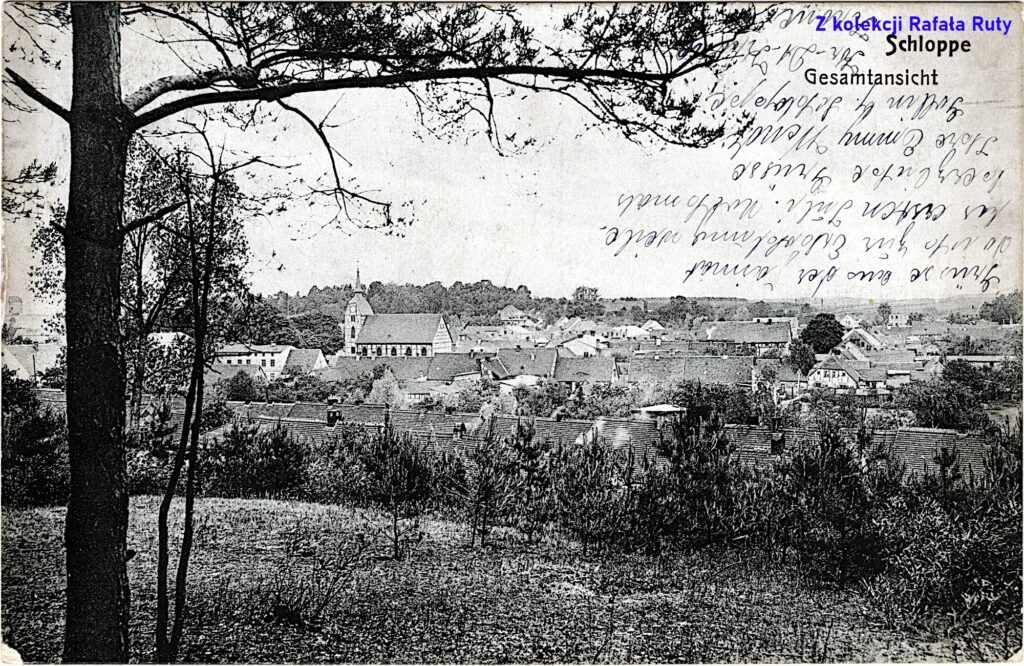 Z kolekcji Rafała Ruty
Schloppe
Gesamtansicht
Grüsse aus der
zur Erholung weile.
ersten Juli.
Grüsse
Ihre Emmy
Schloppe
Kr. Dt. Krone